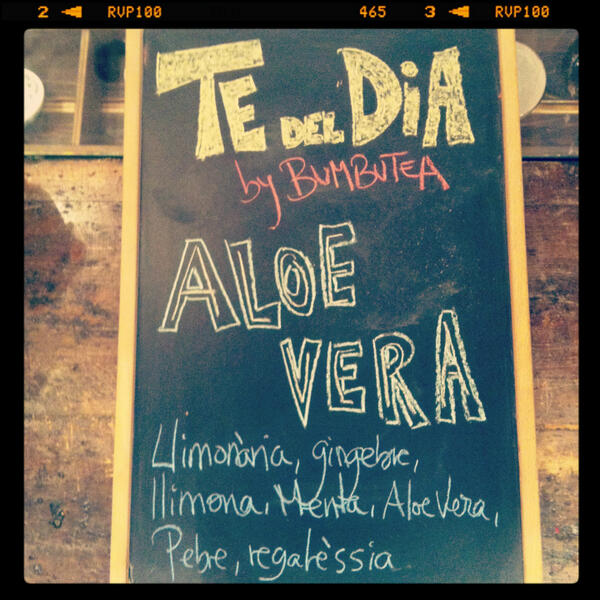 2 RVP100 465 3 RVP100
TE DEL DiA
by BUMBUTEA
ALOE
VERA
Llimonària, gingebre,
llimona, Menta, Aloe Vera,
Pebre, regalèssia